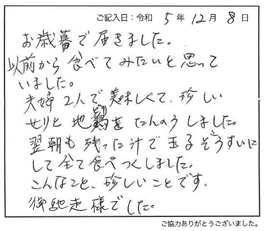 ご記入日：令和 5年 12月 8日
お歳暮で届きました。
以前から食べてみたいと思って
いました。
夫婦2人で美味しくて、珍しい
せりと地鶏をたんのうしました。
翌朝も残った汁で玉子ぞうすいに
して全て食べつくしました。
こんなこと、珍しいことです。
御馳走様でした。
ご協力ありがとうございました。